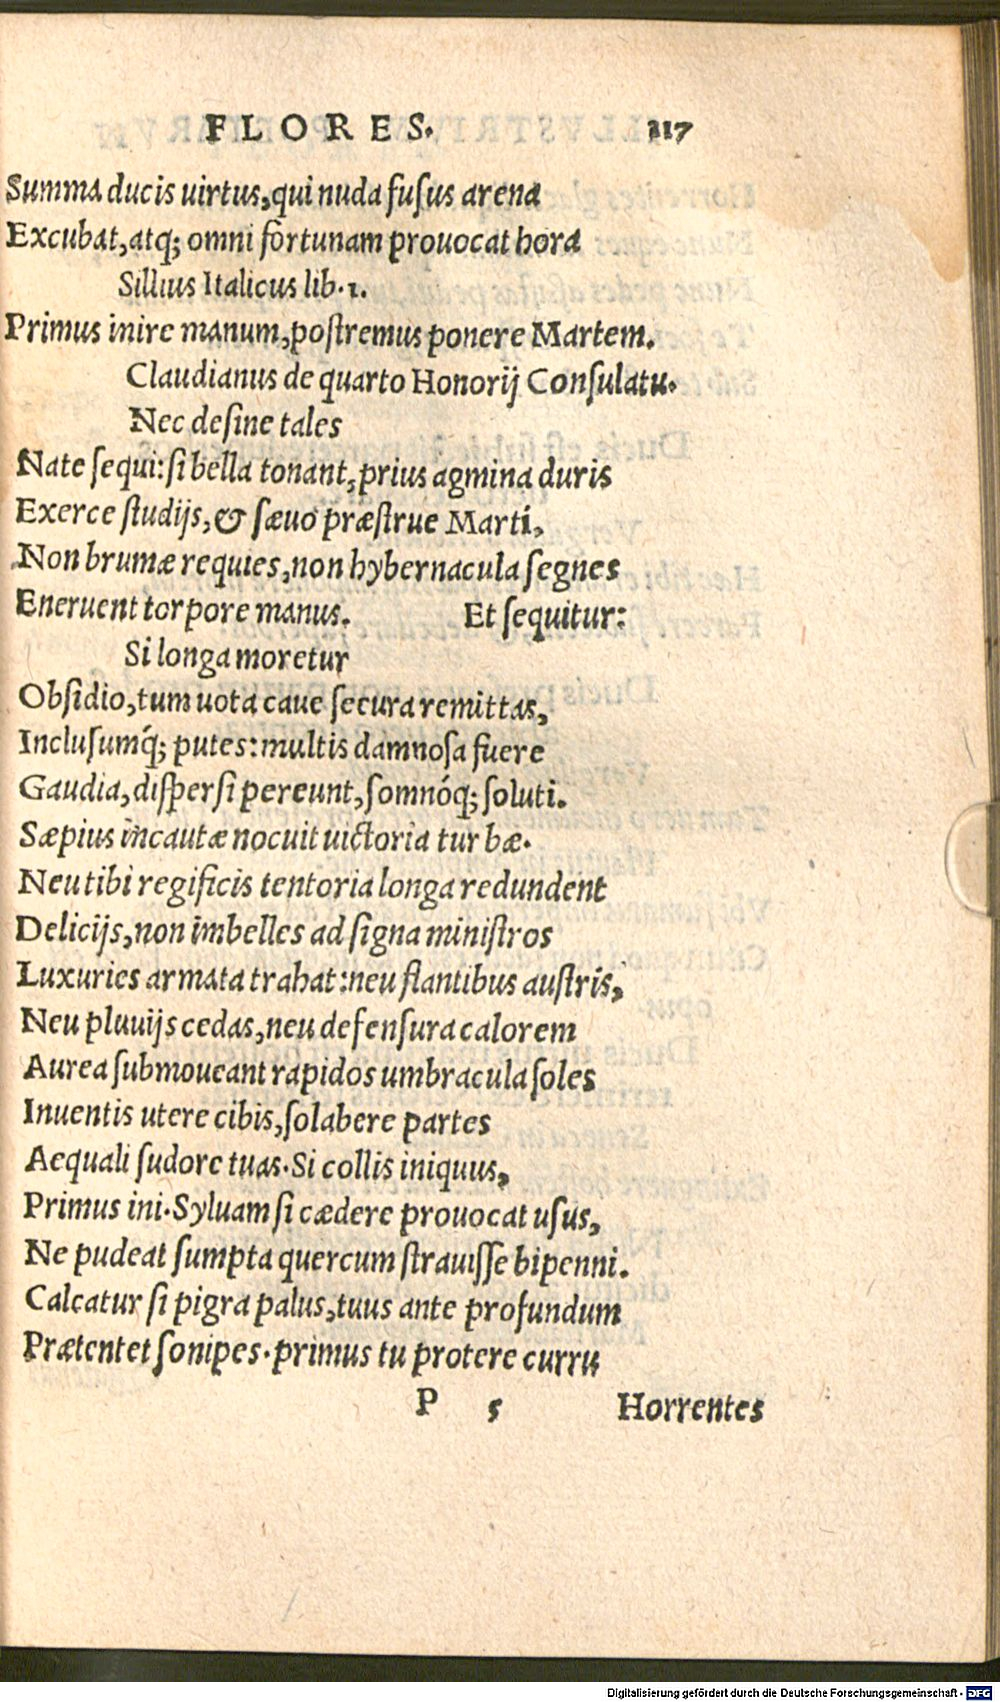 FLORES. 117
Summa ducis uirtus, qui nuda fusus arena
Excubat, atq; omni fortunam prouocat hora
Sillius Italicus lib. 1.
Primus inire manum, postremus ponere Martem.
Claudianus de quarto Honorij Consulatu.
Nec desine tales
Nate sequi: si bella tonant, prius agmina duris
Exerce studijs, & sæuo præstrue Marti,
Non brumæ requies, non hybernacula segnes
Eneruent torpore manus. Et sequitur:
Si longa moretur
Obsidio, tum uota caue secura remittas,
Inclusumq́; putes: multis damnosa fuere
Gaudia, dispersi pereunt, somnóq; soluti.
Sæpius incautæ nocuit uictoria turbæ.
Neu tibi regificis tentoria longa redundent
Delicijs, non imbelles ad signa ministros
Luxuries armata trahat: neu flantibus austris,
Neu pluuijs cedas, neu defensura calorem
Aurea submoueant rapidos umbracula soles
Inuentis utere cibis, solabere partes
Aequali sudore tuas. Si collis iniquus,
Primus ini. Syluam si cædere prouocat usus,
Ne pudeat sumpta quercum strauisse bipenni.
Calcatur si pigra palus, tuus ante profundum
Prætentet sonipes. primus tu protere curru
P 5 Horrentes
Digitalisierung gefördert durch die Deutsche Forschungsgemeinschaft - DFG